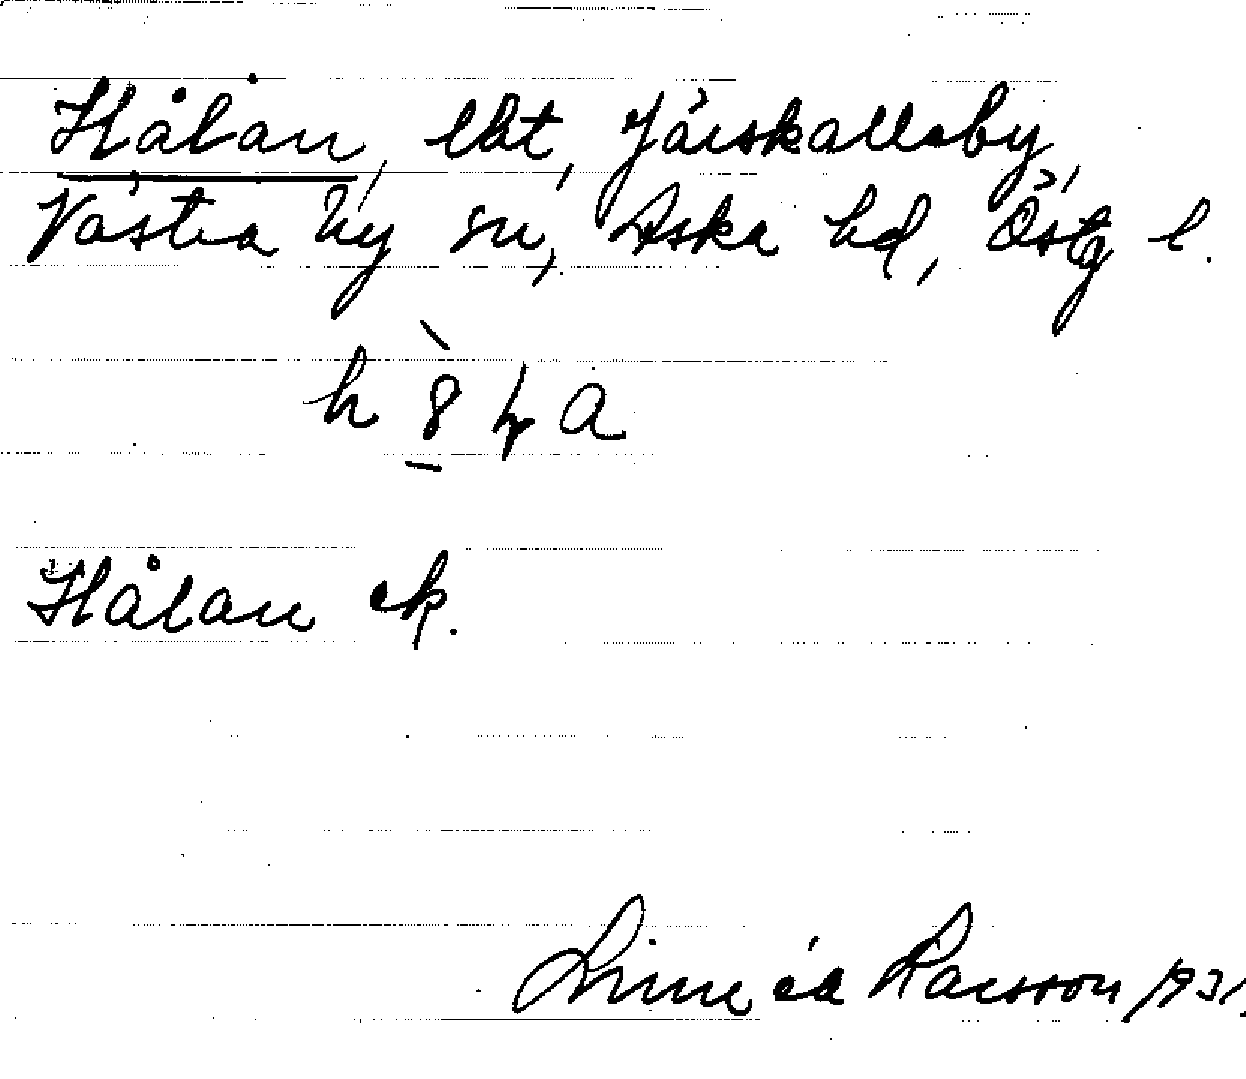 Hålan, lht, Järskallaby,
Västra Ny sn, Aska hd, Östg l.
Hålan ek.
Linnéa Larsson 1931.